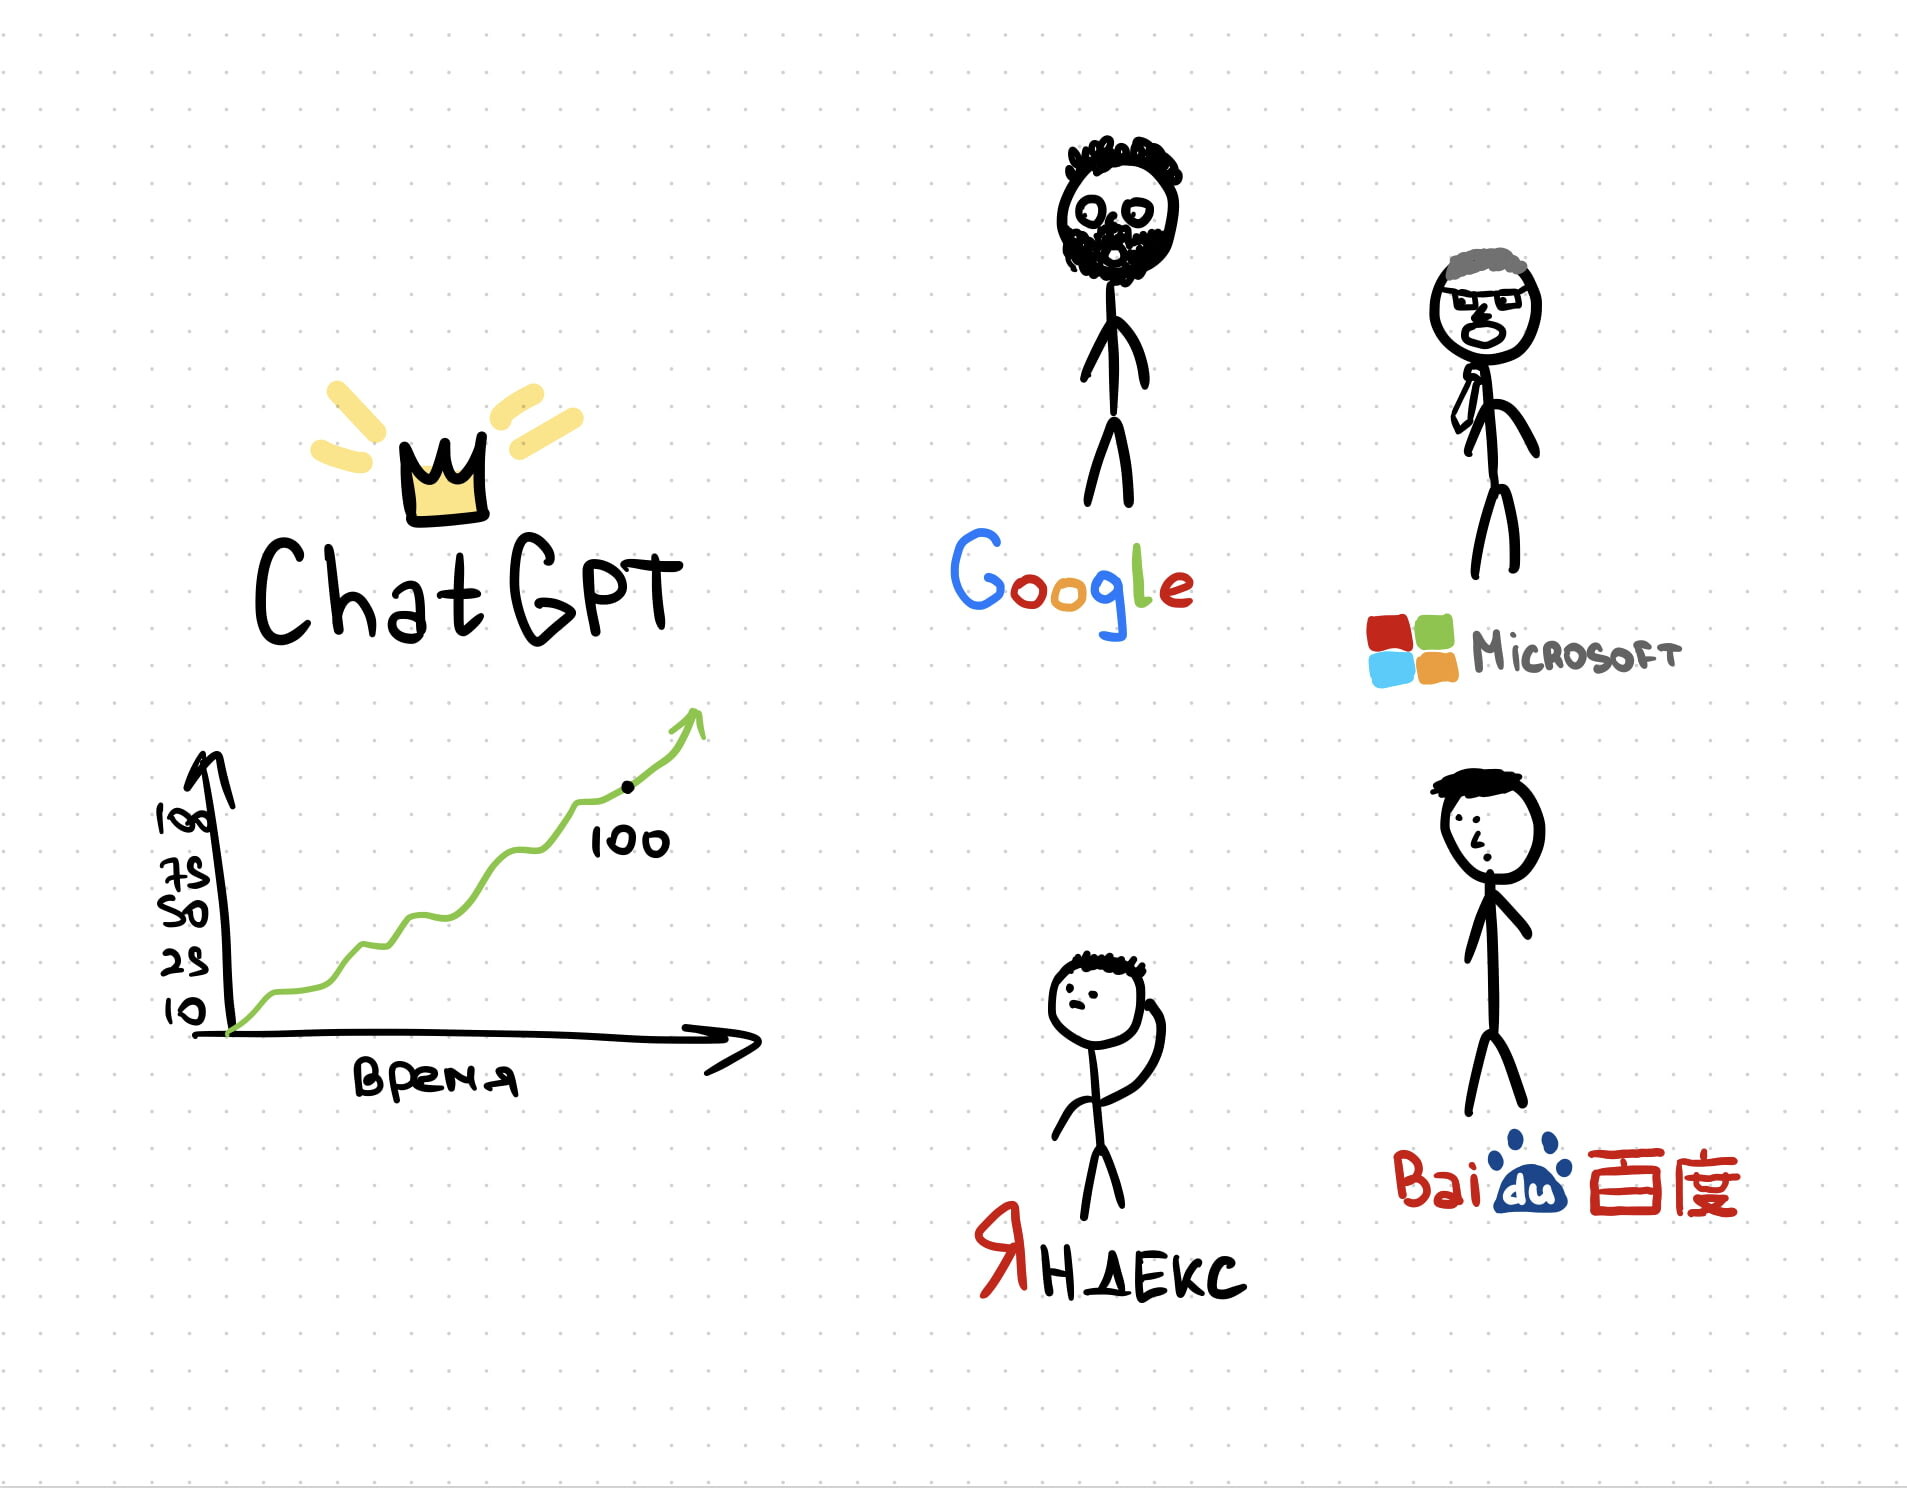 ChatGPT
100
75
50
25
10
100
Время
Google
Microsoft
Яндекс
Baidu百度